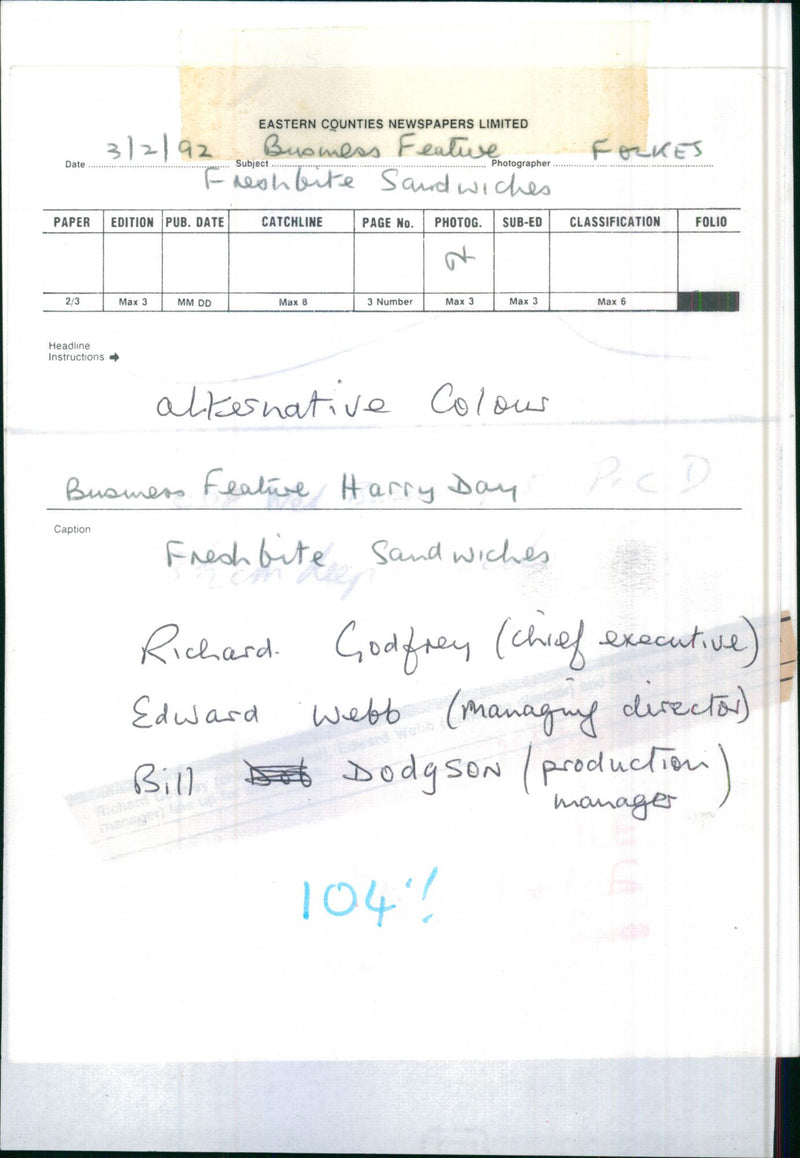 EASTERN COUNTIES NEWSPAPERS LIMITED
Date 3/2/92 Subject Business Feature Photographer FOLKES
Freshbite Sandwiches
PAPER EDITION PUB. DATE CATCHLINE PAGE No. PHOTOG. SUB-ED CLASSIFICATION FOLIO
2/3 Max 3 MM DD Max 8 3 Number Max 3 Max 3 Max 6
Headline
Instructions
alternative Colour
Business Feature Harry Day P.C D
Caption
Freshbite Sandwiches
Richard Godfrey (chief executive)
Edward Webb (managing director)
Bill Dodgson (production
manager)
104%